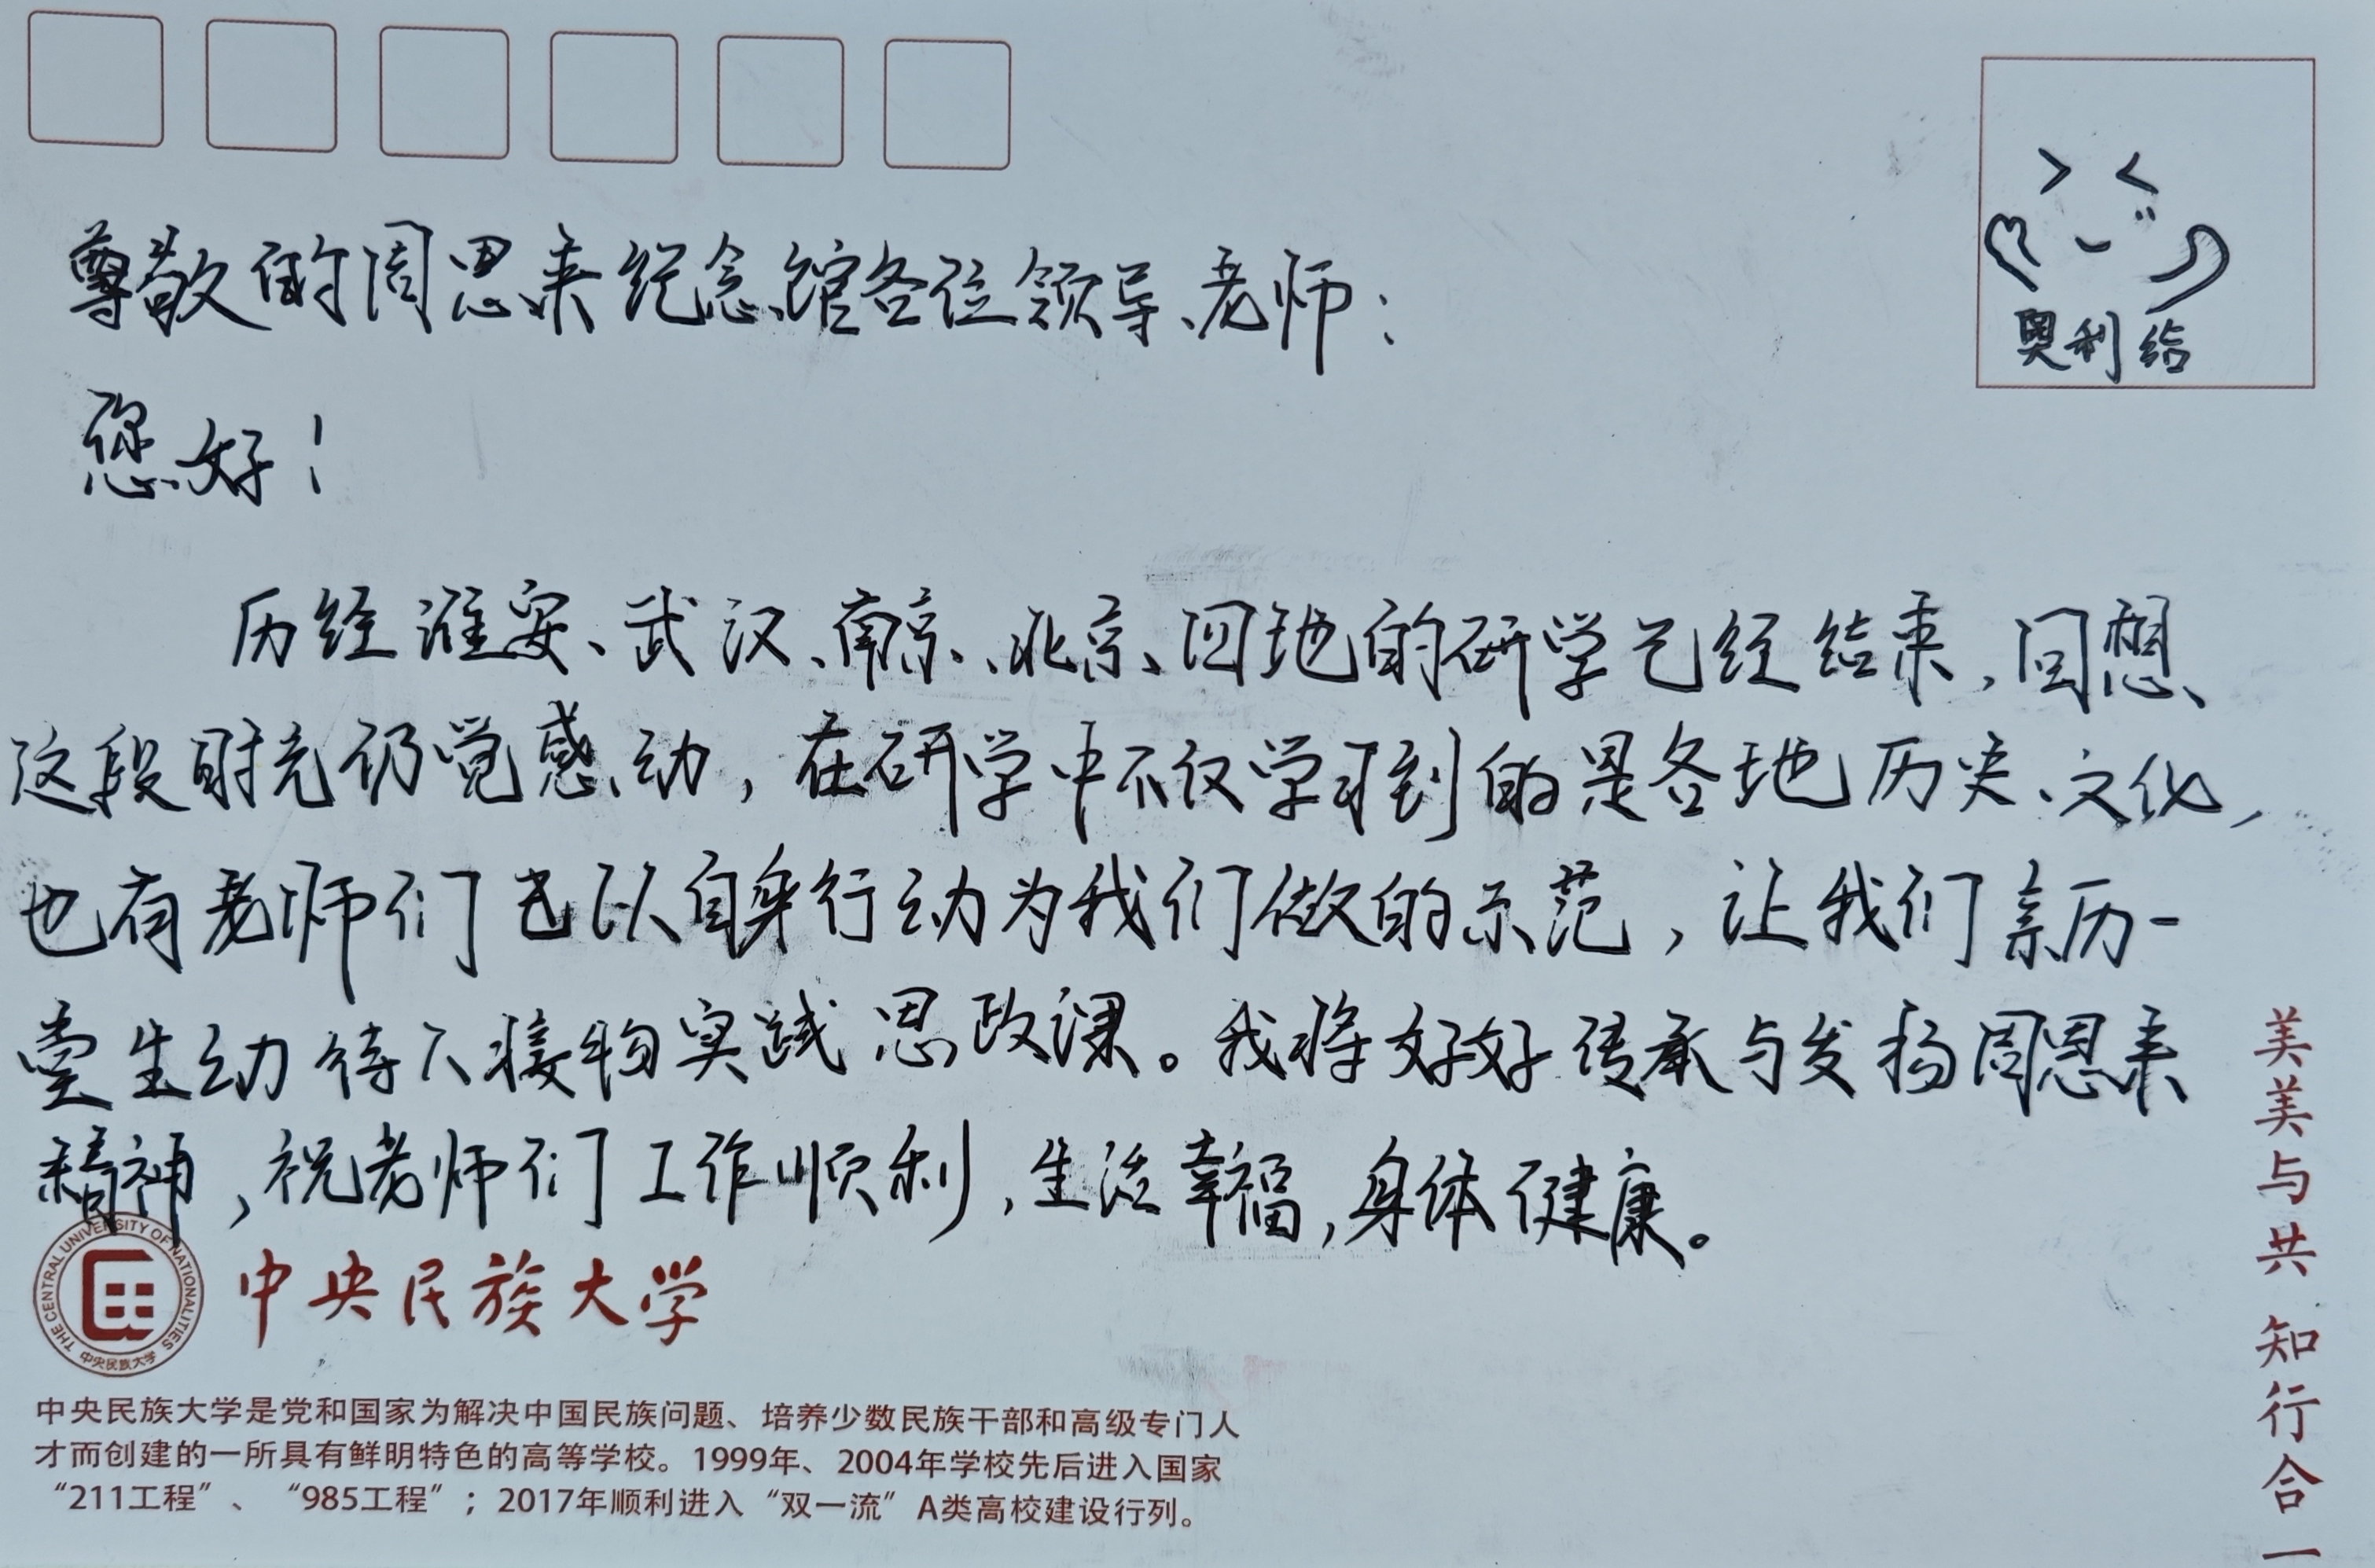 尊敬的周恩来纪念馆各位领导、老师：
奥利给
您好！
历经淮安、武汉、南京、北京、四地的研学已经结束，回想
这段时光仍觉感动，在研学中不仅学习到的是各地历史、文化，
也有老师们也以自身行动为我们做的示范，让我们亲历一
堂生动待人接物实践思政课。我将好好传承与发扬周恩来
精神，祝老师们工作顺利，生活幸福，身体健康。
THE CENTRAL UNIVERSITY OF NATIONALITIES
中央民族大学
中央民族大学
中央民族大学是党和国家为解决中国民族问题、培养少数民族干部和高级专门人
才而创建的一所具有鲜明特色的高等学校。1999年、2004年学校先后进入国家
“211工程”、“985工程”；2017年顺利进入“双一流”A类高校建设行列。
美美与共 知行合一